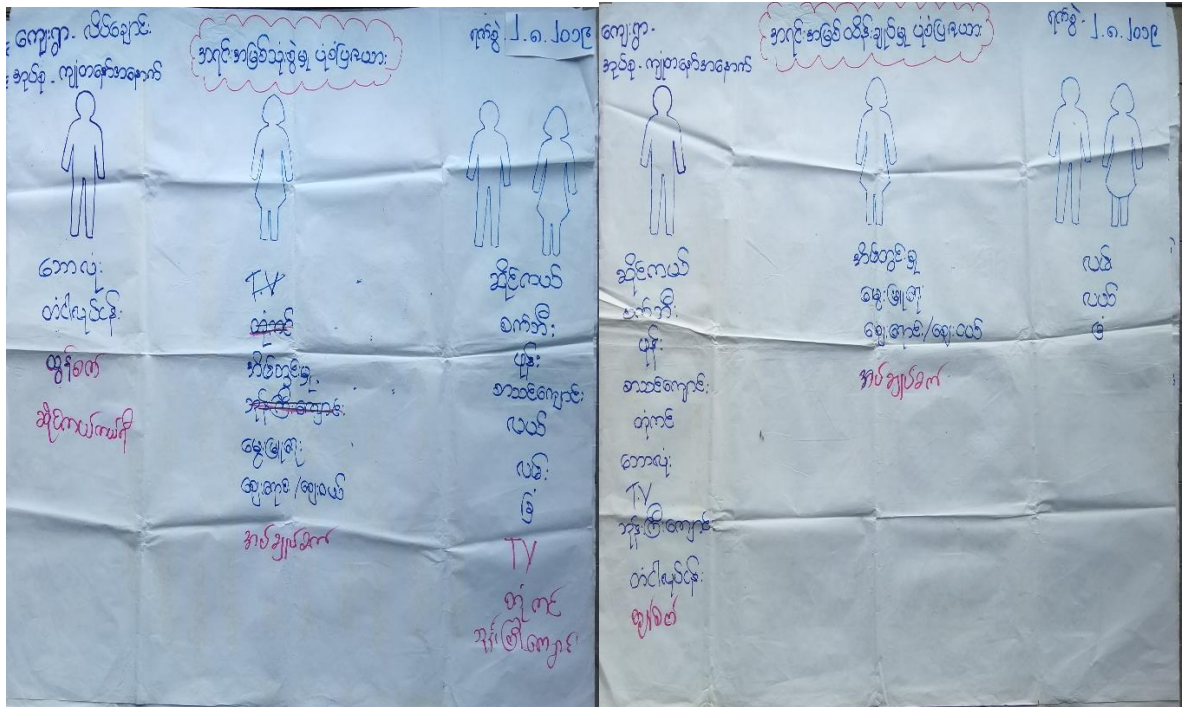 ကျေးရွာ - လိပ်ချောင်း
အုပ်စု - ကျုံတနော်အနောက်
အရင်းအမြစ်သုံးစွဲမှု ပုံစံပြဇယား
ရက်စွဲ - ၂.၈.၂၀၁၉
ဘောလုံး
တံငါလုပ်ငန်း
ထွန်စက်
ဆိုင်ကယ်ကယ်ရီ
TV
တံုကင်
အိမ်တွင်းမှု
ဘုန်းကြီးကျောင်း
မွေးမြူရေး
ဈေးရောင်း/ဈေးဝယ်
အပ်ချုပ်စက်
ဆိုင်ကယ်
စက်ဘီး
ဖုန်း
စာသင်ကျောင်း
လယ်
လမ်း
ခြံ
TV
တုံကင်
ဘုန်းကြီးကျောင်း
ကျေးရွာ -
အုပ်စု - ကျုံတနော်အနောက်
အရင်းအမြစ် ထိန်းချုပ်မှု ပုံစံပြဇယား
ရက်စွဲ - ၂.၈.၂၀၁၉
ဆိုင်ကယ်
စက်ဘီး
ဖုန်း
စာသင်ကျောင်း
တုံကင်
ဘောလုံး
TV
ဘုန်းကြီးကျောင်း
တံငါလုပ်ငန်း
အိမ်တွင်းမှု
မွေးမြူရေး
ဈေးရောင်း/ဈေးဝယ်
အပ်ချုပ်စက်
လမ်း
လယ်
ခြံ